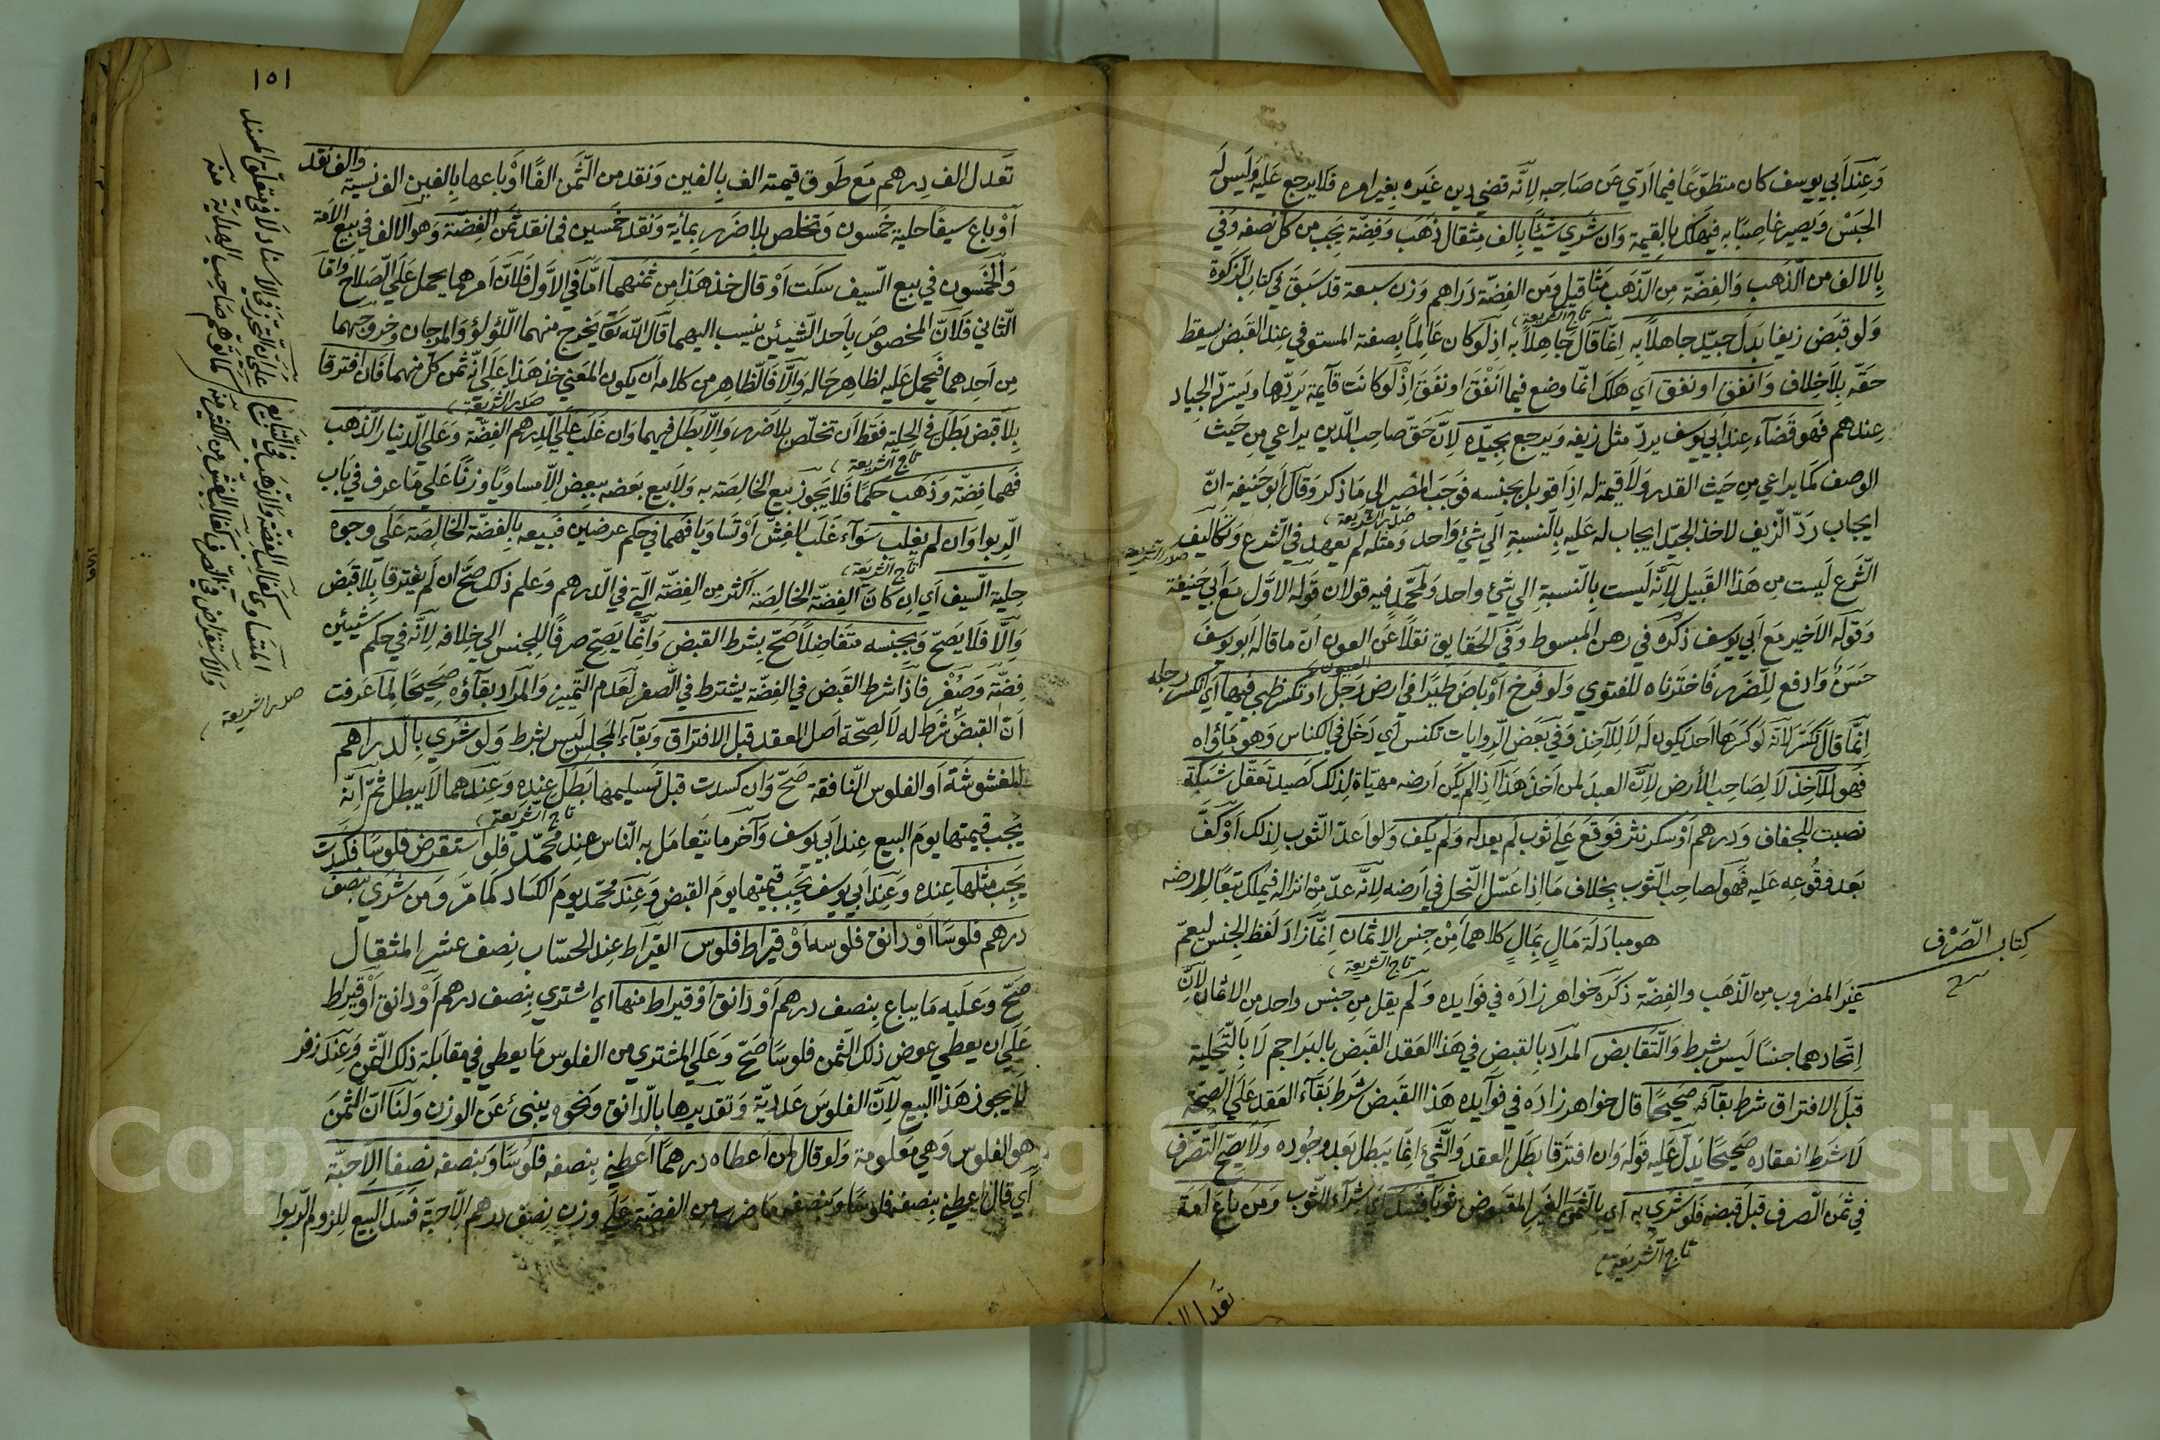 وعند أبي يوسف كان متطوعا فيما ادي عن صاحبه لانه قضي دين غيره بغير امره فلا يرجع عليه وليس له
الحبس ويصير غاصبا به فيهلك بالقيمة وان شري شيئا بالف مثقال ذهب وفضة يجب من كل نصفه وفي
بالالف من الذهب والفضة من الذهب مثاقيل ومن الفضة دراهم وزن سبعة قد سبق في كتاب الزكوة
تاج الشريعة
ولو قبض زيفا بدل جيد جاهلا به انما قال جاهلا به اذ لو كان عالما بصفة المستوفي عند القبض يسقط
حقه بلا خلاف وانفق او نفق اي هلك انما وضع فيما انفق او نفق اذ لو كانت قائمة يردها ويسترد الجياد
عندهم فهو قضاء عند ابي يوسف يرد مثل زيفه ويرجع بجيده لان حق صاحب الدين يراعي من حيث
الوصف كما يراعي من حيث القدر ولا قيمة له اذا قوبل بجنسه فوجب المصير الي ما ذكر وقال ابو حنيفة ان
صدر الشريعة
ايجاب رد الزيف لاخذ الجيد ايجاب له عليه بالنسبة الي شئ واحد ومثله لم يعهد في الشرع وتكاليف
صدر الشريعة
الشرع ليست من هذا القبيل لانه ليست بالنسبة الي شئ واحد ولمحمد فيه قولان قوله الاول مع ابي حنيفة
وقوله الاخير مع ابي يوسف ذكره في رهن المبسوط وفي الحقايق نقلا عن العون ان ما قاله ابو يوسف
العيون
حسن وادفع للضرر فاخترناه للفتوي ولو فرخ او باض طير في ارض رجل او تكسر ظبي فيها اي انكسر رجله
انما قال تكسر لانه لو كسرها احد يكون له لا للآخذ وفي بعض الروايات تكنس اي دخل في الكناس وهو مأواه
فهو للآخذ لا لصاحب الأرض لان العبد لمن اخذ هذا اذا لم يكن ارضه مهيأة لذلك كصيد تعقل شبكة
نصبت للجفاف ودرهم او سكر نثر فوقع علي ثوب لم يعد له ولم يكف ولو اعد الثوب لذلك او كف
بعد وقوعه عليه فهو لصاحب الثوب بخلاف ما اذا عسل النحل في ارضه لانه عد من انزاله فيملك تبعا لارضه
كتاب الصرف
هو مبادلة مال بمال كلاهما من جنس الاثمان انما زاد لفظ الجنس ليعم
تاج الشريعة
غير المضروب من الذهب والفضة ذكره خواهر زاده في فوايده ولم يقل من جنس واحد من الاثمان لان
اتحادهما جنسا ليس بشرط والتقابض المراد بالقبض في هذا العقد القبض بالبراجم لا بالتخلية
قبل الافتراق شرط بقائه صحيحا قال خواهر زاده في فوايده هذا القبض شرط بقاء العقد علي الصحة
لا شرط انعقاده صحيحا يدل عليه قوله وان افترقا بطل العقد والشئ انما يبطل بعد وجوده ولا يصح التصرف
في ثمن الصرف قبل قبضه فلو شري به اي بالثمن الغير المقبوض ثوبا فسد اي شراء الثوب ومن باع امة
تاج الشريعة
١٥١
تعدل الف درهم مع طوق قيمته الف بالفين ونقد من الثمن الفا او باعها بالفين الف نسية والف نقد
او باع سيفا حليه خمسون وتخلص بلا ضرر بمأية ونقد خمسين فما نقد ثمن الفضة وهو الالف في بيع الامة
والخمسون في بيع السيف سكت او قال خذ هذا من ثمنهما اما في الاول فلان امرهما يحمل علي الصلاح واما
الثاني فلان المخصوص باحد الشيئين ينسب اليهما قال الله تعا يخرج منهما اللؤلؤ والمرجان وخروجهما
من احدهما فيحمل عليه لظاهر حاله والا فالظاهر من كلامه ان يكون المعني خذ هذا علي انه ثمن كل منهما فان افترقا
صدر الشريعة
بلا قبض بطل في الحلية فقط ان تخلص بلا ضرر والا بطل فيهما وان غلب علي الدرهم الفضة وعلي الدينار الذهب
تاج الشريعة
فهما فضة وذهب حكما فلا يجوز بيع الخالصة به ولا بيع بعضه ببعض الا مساويا وزنا علي ما عرف في باب
الربوا وان لم يغلب سواء غلب الغش او تساويا فهما في حكم عرضين فبيعه بالفضة الخالصة علي وجوه
تاج الشريعة
حلية السيف اي ان كان الفضة الخالصة اكثر من الفضة التي في الدرهم وعلم ذلك صح ان لم يفترقا بلا قبض
والا فلا يصح وبجنسه متفاضلا صح بشرط القبض وانما يصح صرفا للجنس الي خلافه لانه في حكم شيئين
فضة وصفر فاذا شرط القبض في الفضة يشترط في الصفر لعدم التمييز والمراد بقاؤه صحيحا لما عرفت
ان القبض شرط له لا لصحة اصل العقد قبل الافتراق وبقاء المجلس ليس بشرط ولو شري بالدراهم
المغشوشة او الفلوس النافقة صح وان كسدت قبل تسليمها بطل عنده وعندهما لا يبطل ثم انه
تاج الشريعة
يجب قيمتها يوم البيع عند ابي يوسف وآخر ما يتعامل به الناس عند محمد فلو استقرض فلوسا فكسدت
يجب مثلها عنده وعند ابي يوسف يجب قيمتها يوم القبض وعند محمد يوم الكساد كما مر ومن شري بنصف
درهم فلوسا او دانق فلوس او قيراط فلوس القيراط عند الحساب نصف عشر المثقال
صح وعليه ما يباع بنصف درهم او دانق او قيراط منها اي اشتري بنصف درهم او دانق او قيراط
علي ان يعطي عوض ذلك الثمن فلوسا صح وعلي المشتري من الفلوس ما يعطي في مقابلة ذلك الثمن وعند زفر
لا يجوز هذا البيع لان الفلوس عددية وتقديرها بالدانق ونحوه ينبئ عن الوزن ولنا ان الثمن
هو الفلوس وهي معلومة ولو قال لمن اعطاه درهما اعطني بنصفه فلوسا وبنصفه نصفا الا حبة
اي قال اعطني بنصفه فلوسا وبنصفه ما ضرب من الفضة علي وزن نصف درهم الا حبة فسد البيع للزوم الربوا
صدر الشريعة
Copyright © King Saud University